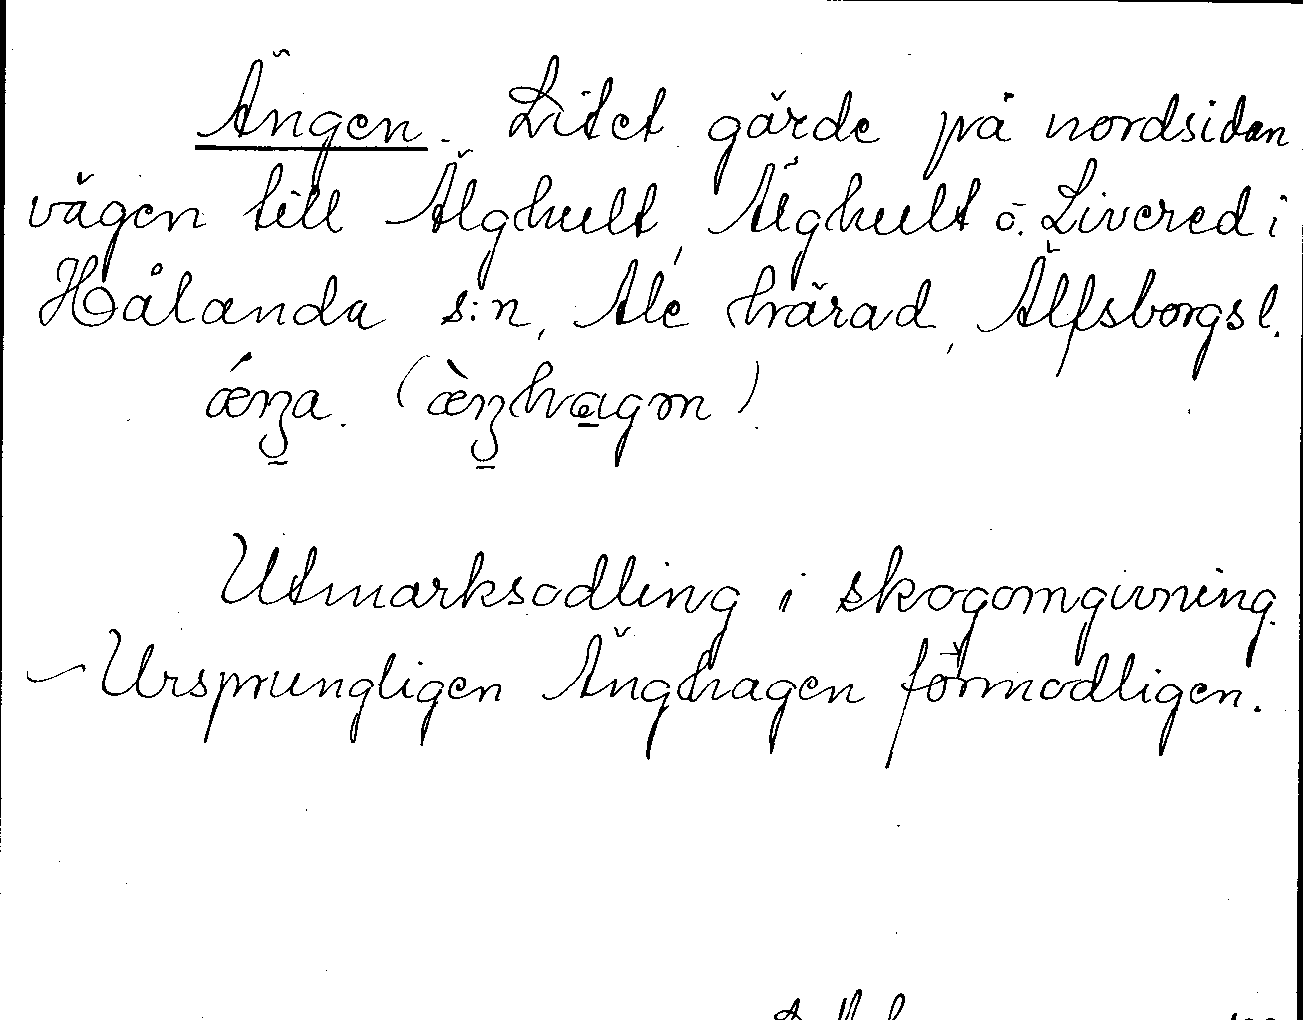 Ängen. Litet gärde på nordsidan
vägen till Älghult, Älghult o. Livered i
Hålanda s:n, Ale härad, Älfsborgs l.
Utmarksodling i skogomgivning.
— Ursprungligen Änghagen förmodligen.